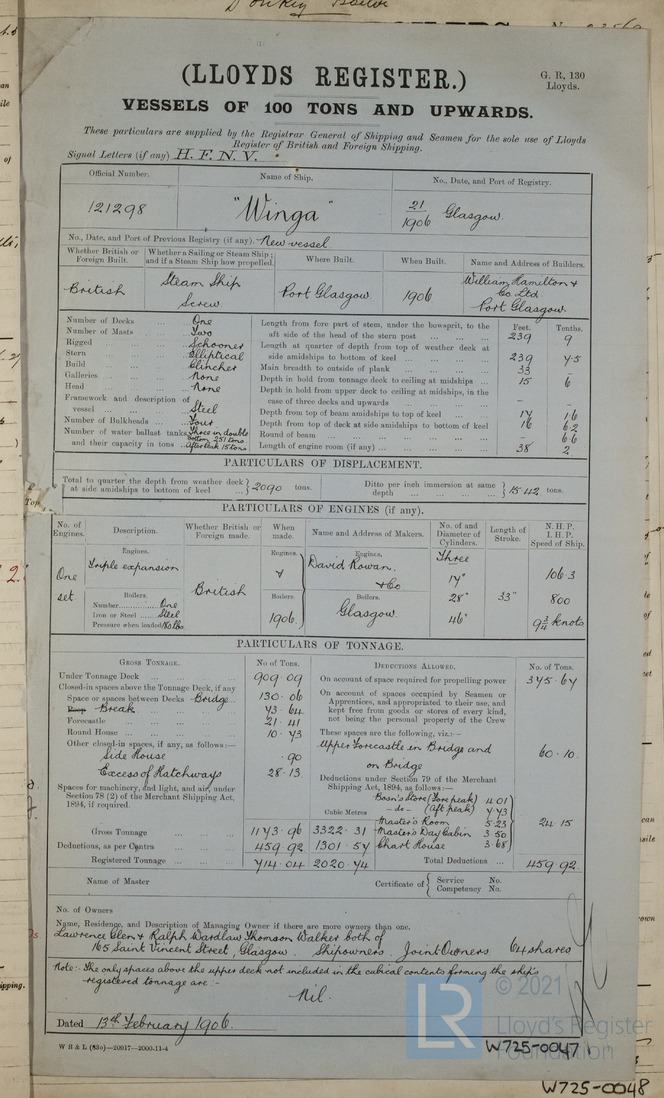 Donkey Boiler
(LLOYDS REGISTER.)
G. R. 130
Lloyds.
VESSELS OF 100 TONS AND UPWARDS.
These particulars are supplied by the Registrar General of Shipping and Seamen for the sole use of Lloyds
Register of British and Foreign Shipping.
Signal Letters (if any) H. F. N. V.
Official Number. Name of Ship. No., Date, and Port of Registry.
121298 "Winga" 21/1906 Glasgow.
No., Date, and Port of Previous Registry (if any). New vessel
Whether British or Foreign Built. Whether a Sailing or Steam Ship; and if a Steam Ship how propelled. Where Built. When Built. Name and Address of Builders.
British Steam Ship Screw Port Glasgow. 1906 William Hamilton & Co. Ltd Port Glasgow.
Feet. Tenths.
Number of Decks ... One
Number of Masts ... Two
Rigged ... Schooner
Stern ... Elliptical
Build ... Clincher
Galleries ... None
Head ... None
Framework and description of vessel ... Steel
Number of Bulkheads ... Four
Number of water ballast tanks and their capacity in tons .. Three in double bottom 251 tons After Peak 15 tons
Length from fore part of stem, under the bowsprit, to the aft side of the head of the stern post ... 239 9
Length at quarter of depth from top of weather deck at side amidships to bottom of keel ... 239 7.5
Main breadth to outside of plank ... 33 -
Depth in hold from tonnage deck to ceiling at midships ... 15 6
Depth in hold from upper deck to ceiling at midships, in the case of three decks and upwards ... - -
Depth from top of beam amidships to top of keel ... 17 16
Depth from top of deck at side amidships to bottom of keel 16 62
Round of beam ... - 66
Length of engine room (if any) ... 38 2
PARTICULARS OF DISPLACEMENT.
Total to quarter the depth from weather deck at side amidships to bottom of keel ... 2090 tons. Ditto per inch immersion at same depth ... 15.42 tons.
PARTICULARS OF ENGINES (if any).
No. of Engines. Description. Whether British or Foreign made. When made. Name and Address of Makers. No. of and Diameter of Cylinders. Length of Stroke. N. H. P. I. H. P. Speed of Ship.
One set
Engines.
Triple expansion
Boilers.
Number One
Iron or Steel Steel
Pressure when loaded 180 lbs.
British
Engines.
Boilers
1906.
Engines.
David Rowan & Co
Boilers.
Glasgow.
Three
17"
28"
46"
33"
106.3
800
9 3/4 knots
PARTICULARS OF TONNAGE.
GROSS TONNAGE. No of Tons. DEDUCTIONS ALLOWED. No. of Tons.
Under Tonnage Deck ... 909.09
Closed-in spaces above the Tonnage Deck, if any
Space or spaces between Decks Bridge 130.06
Poop Break 73.64
Forecastle ... 21.41
Round House ... 10.73
Other closed-in spaces, if any, as follows:—
Side House .90
Excess of Hatchways 28.13
Spaces for machinery, and light, and air, under Section 78 (2) of the Merchant Shipping Act, 1894, if required.
Cubic Metres
Gross Tonnage ... 1173.96 3322.31
Deductions, as per Contra ... 459.92 1301.57
Registered Tonnage ... 714.04 2020.74
On account of space required for propelling power 375.67
On account of spaces occupied by Seamen or Apprentices, and appropriated to their use, and kept free from goods or stores of every kind, not being the personal property of the Crew
These spaces are the following, viz.:—
Upper Forecastle in Bridge and on Bridge 60.10
Deductions under Section 79 of the Merchant Shipping Act, 1894, as follows:—
Bosn's Store (Fore peak) 4.01
- do - (Aft peak) 7.73
Master's Room 5.23
Master's Day Cabin 3.50
Chart House 3.68
24.15
Total Deductions ... 459.92
Name of Master Certificate of { Service No. Competency No.
No. of Owners
Name, Residence, and Description of Managing Owner if there are more owners than one.
Lawrence Glen & Ralph Wardlaw Thomson Walker both of
165 Saint Vincent Street, Glasgow. Shipowners. Joint Owners 64 shares
Note:- The only spaces above the upper deck not included in the cubical contents forming the ship's
registered tonnage are:-
Nil.
Dated 13th February 1906.
W B & L (83o)—20917—2000-11-4
LR
© 2021
Lloyd's Register
Foundation
W725-0047
W725-0048